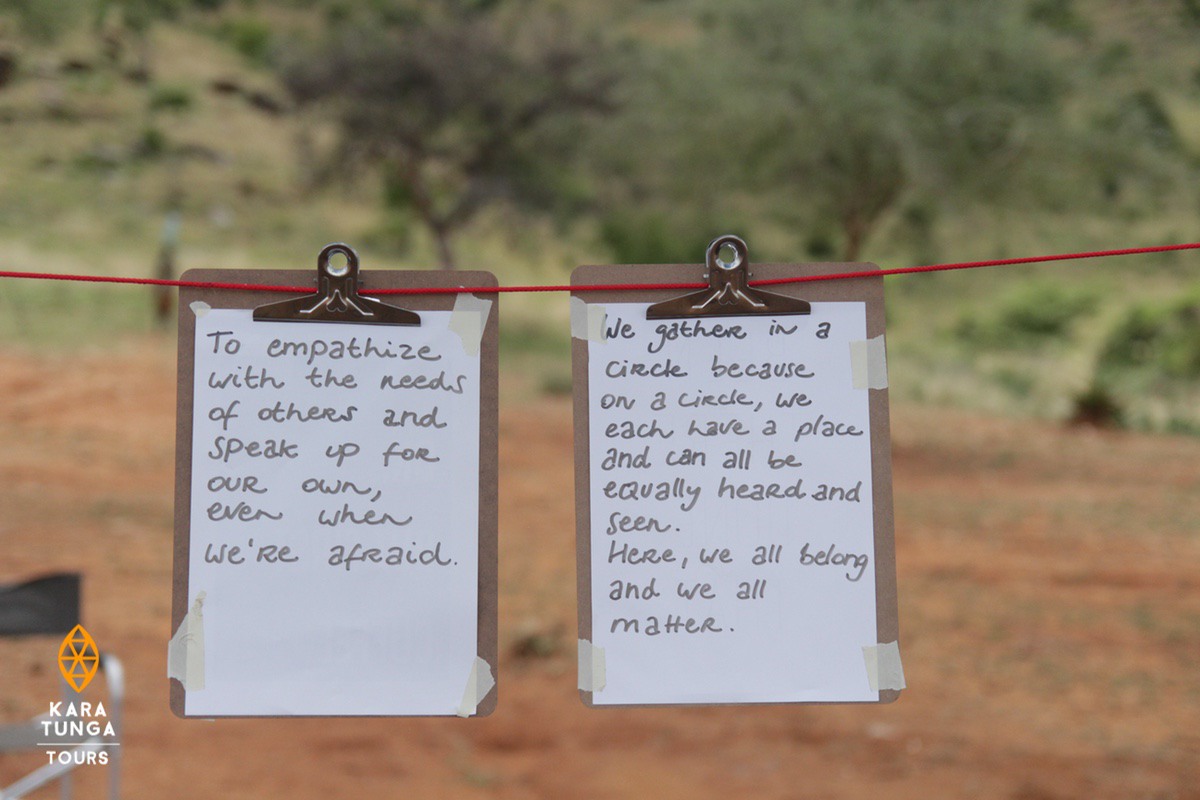 To empathize
with the needs
of others and
speak up for
our own,
even when
we're afraid.
We gather in a
circle because
on a circle, we
each have a place
and can all be
equally heard and
seen.
Here, we all belong
and we all
matter.
KARA
TUNGA
TOURS